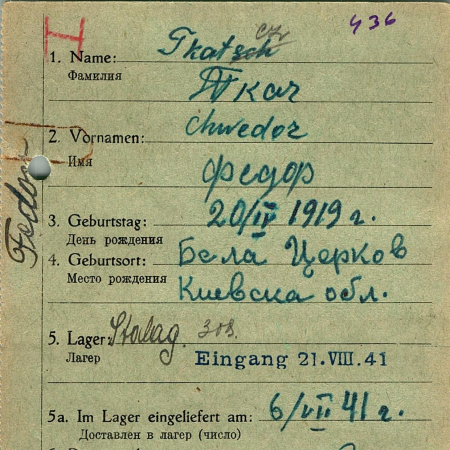 436
H
1. Name: Tkatsch cz
Фамилия
Ткач
2. Vornamen: Chwedor
Имя
Федор
Fedor
3. Geburtstag: 20/IV 1919 г.
День рождения
4. Geburtsort: Бела Церков
Место рождения
Киевска обл.
5. Lager: Stalag 308.
Лагер
Eingang 21.VIII.41
5a. Im Lager eingeliefert am: 6/VII 41 г.
Доставлен в лагер (число)